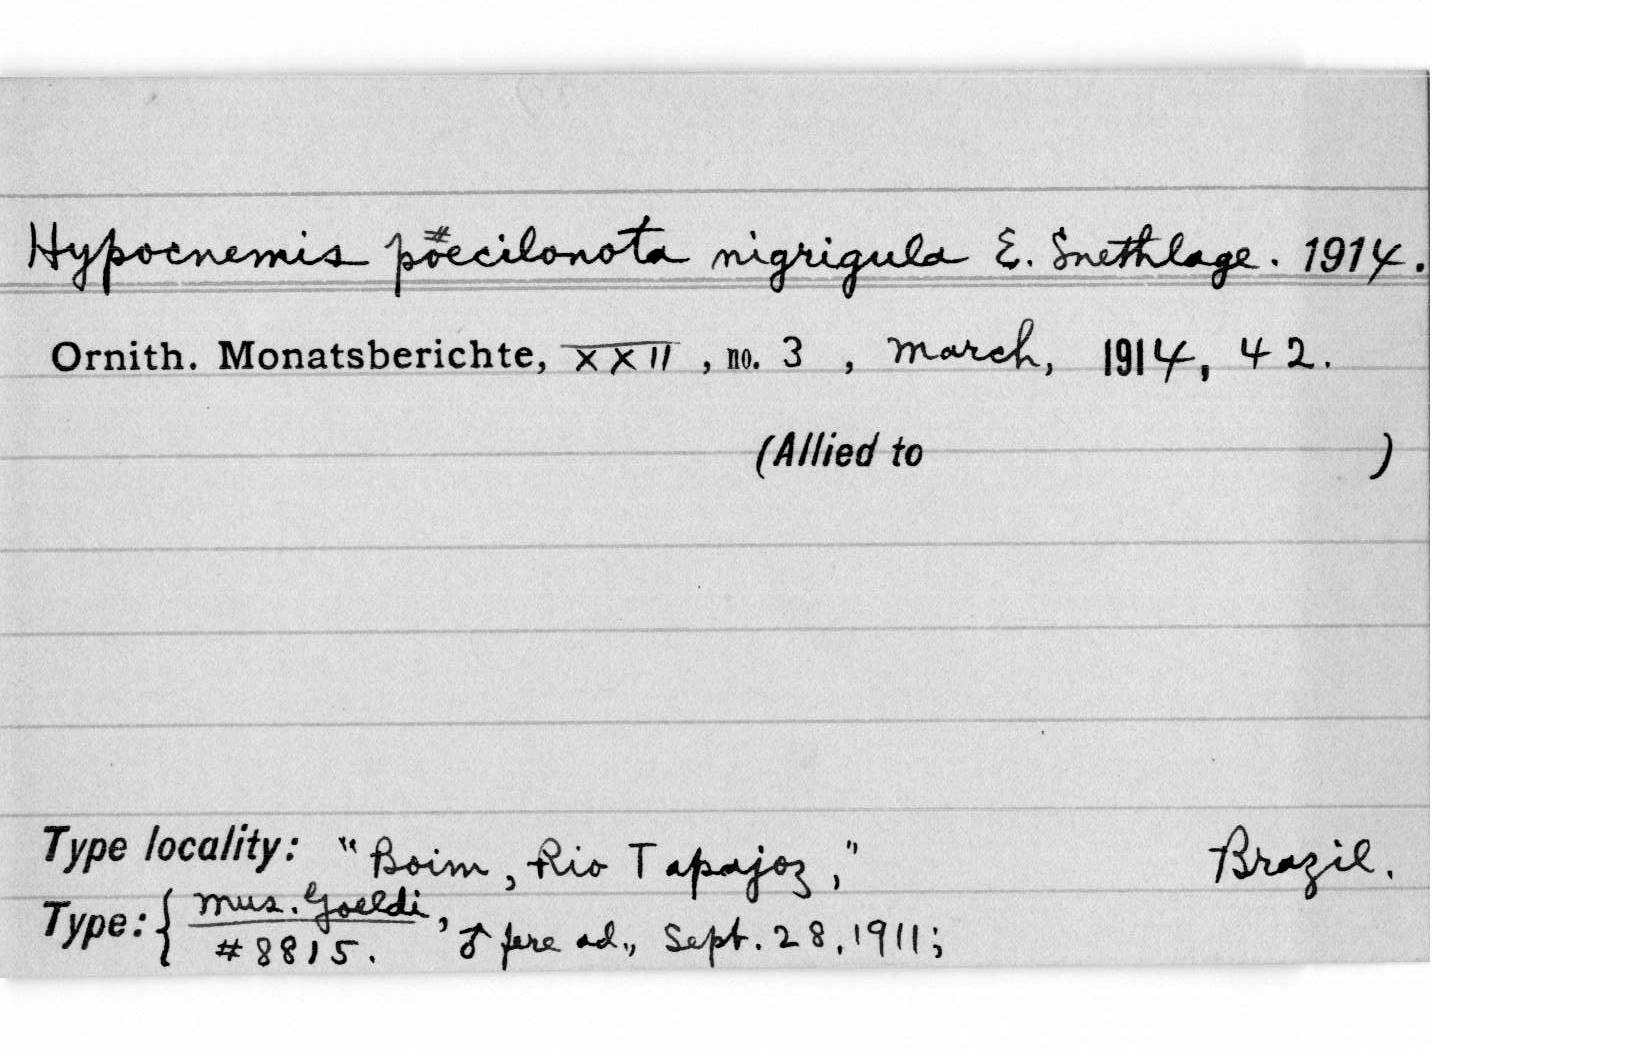 Hypocnemis poecilonota nigrigula E. Snethlage. 1914.
Ornith. Monatsberichte, XXII, no. 3, March, 1914, 42.
(Allied to )
Type locality: "Boim, Rio Tapajoz," Brazil.
Type: { Mus. Goeldi, ♂ fere ad., Sept. 28, 1911;
#8815.